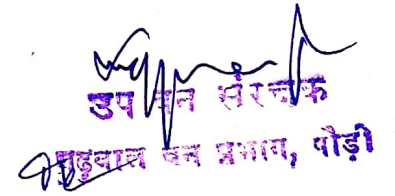 उप वन संरक्षक
गढ़वाल वन प्रभाग, पौड़ी